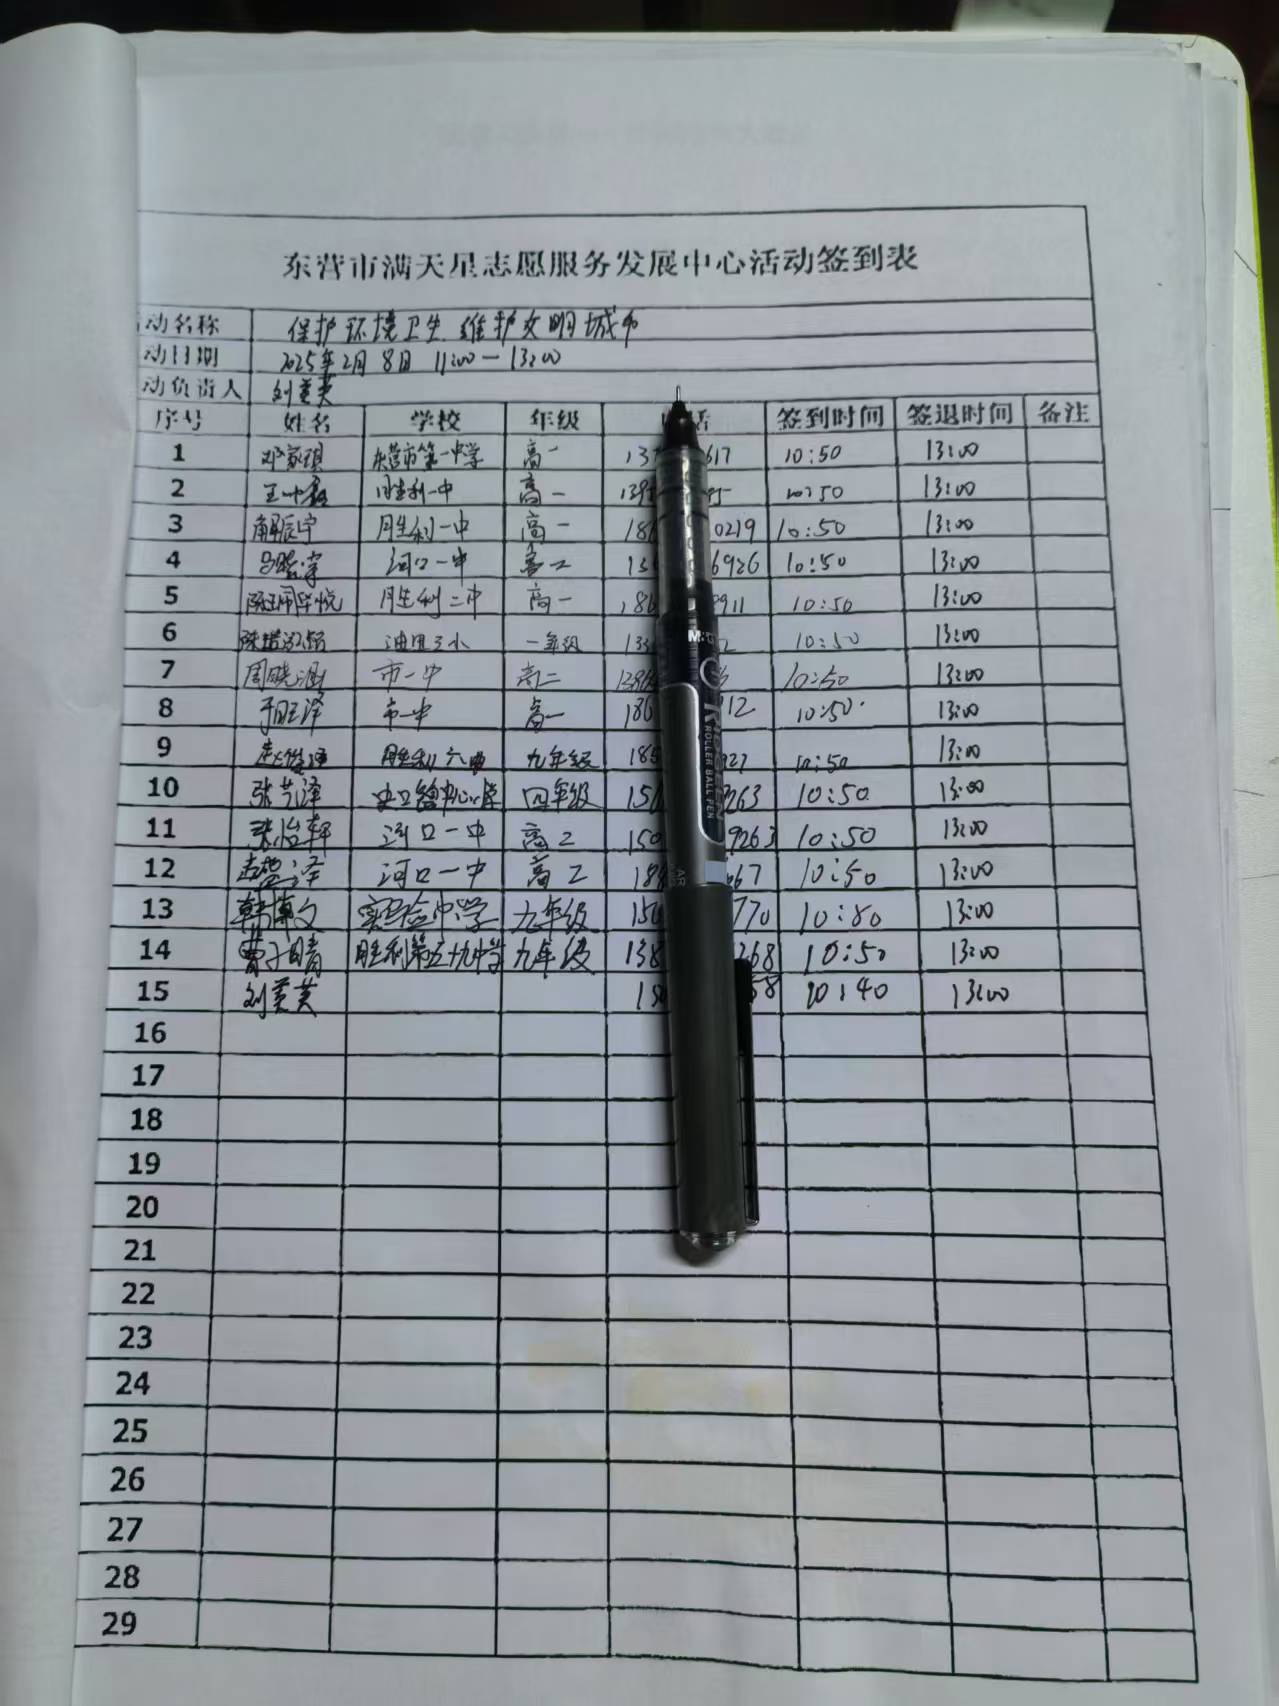 东营市满天星志愿服务发展中心活动签到表
动名称 保护环境卫生 维护文明城市
动日期 2025年2月8日 11:00—13:00
动负责人 刘美英
序号 姓名 学校 年级 话 签到时间 签退时间 备注
1 邓家琪 东营市第一中学 高一 13 617 10:50 13:00
2 胜利一中 高一 1395 95 10:50 13:00
3 解辰宇 胜利一中 高一 186 0219 10:50 13:00
4 河口一中 高二 13 6926 10:50 13:00
5 胜利二中 高一 186 911 10:50 13:00
6 一年级 133 2 10:50 13:00
7 周晓涵 市一中 高二 1386 6 10:50 13:00
8 市一中 高一 186 12 10:50 13:00
9 胜利六中 九年级 185 927 10:50 13:00
10 张艺泽 史口镇中心小学 四年级 156 9263 10:50 13:00
11 张怡轩 河口一中 高二 150 9263 10:50 13:00
12 河口一中 高二 189 667 10:50 13:00
13 韩博文 实验中学 九年级 150 770 10:80 13:00
14 曹子晴 胜利第五十九中学 九年级 138 268 10:50 13:00
15 刘美英 150 58 10:40 13:00
16
17
18
19
20
21
22
23
24
25
26
27
28
29
M&G
RIOGEN
ROLLER BALL PEN
AR